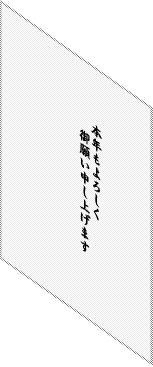 本年もよろしく
御願い申し上げます